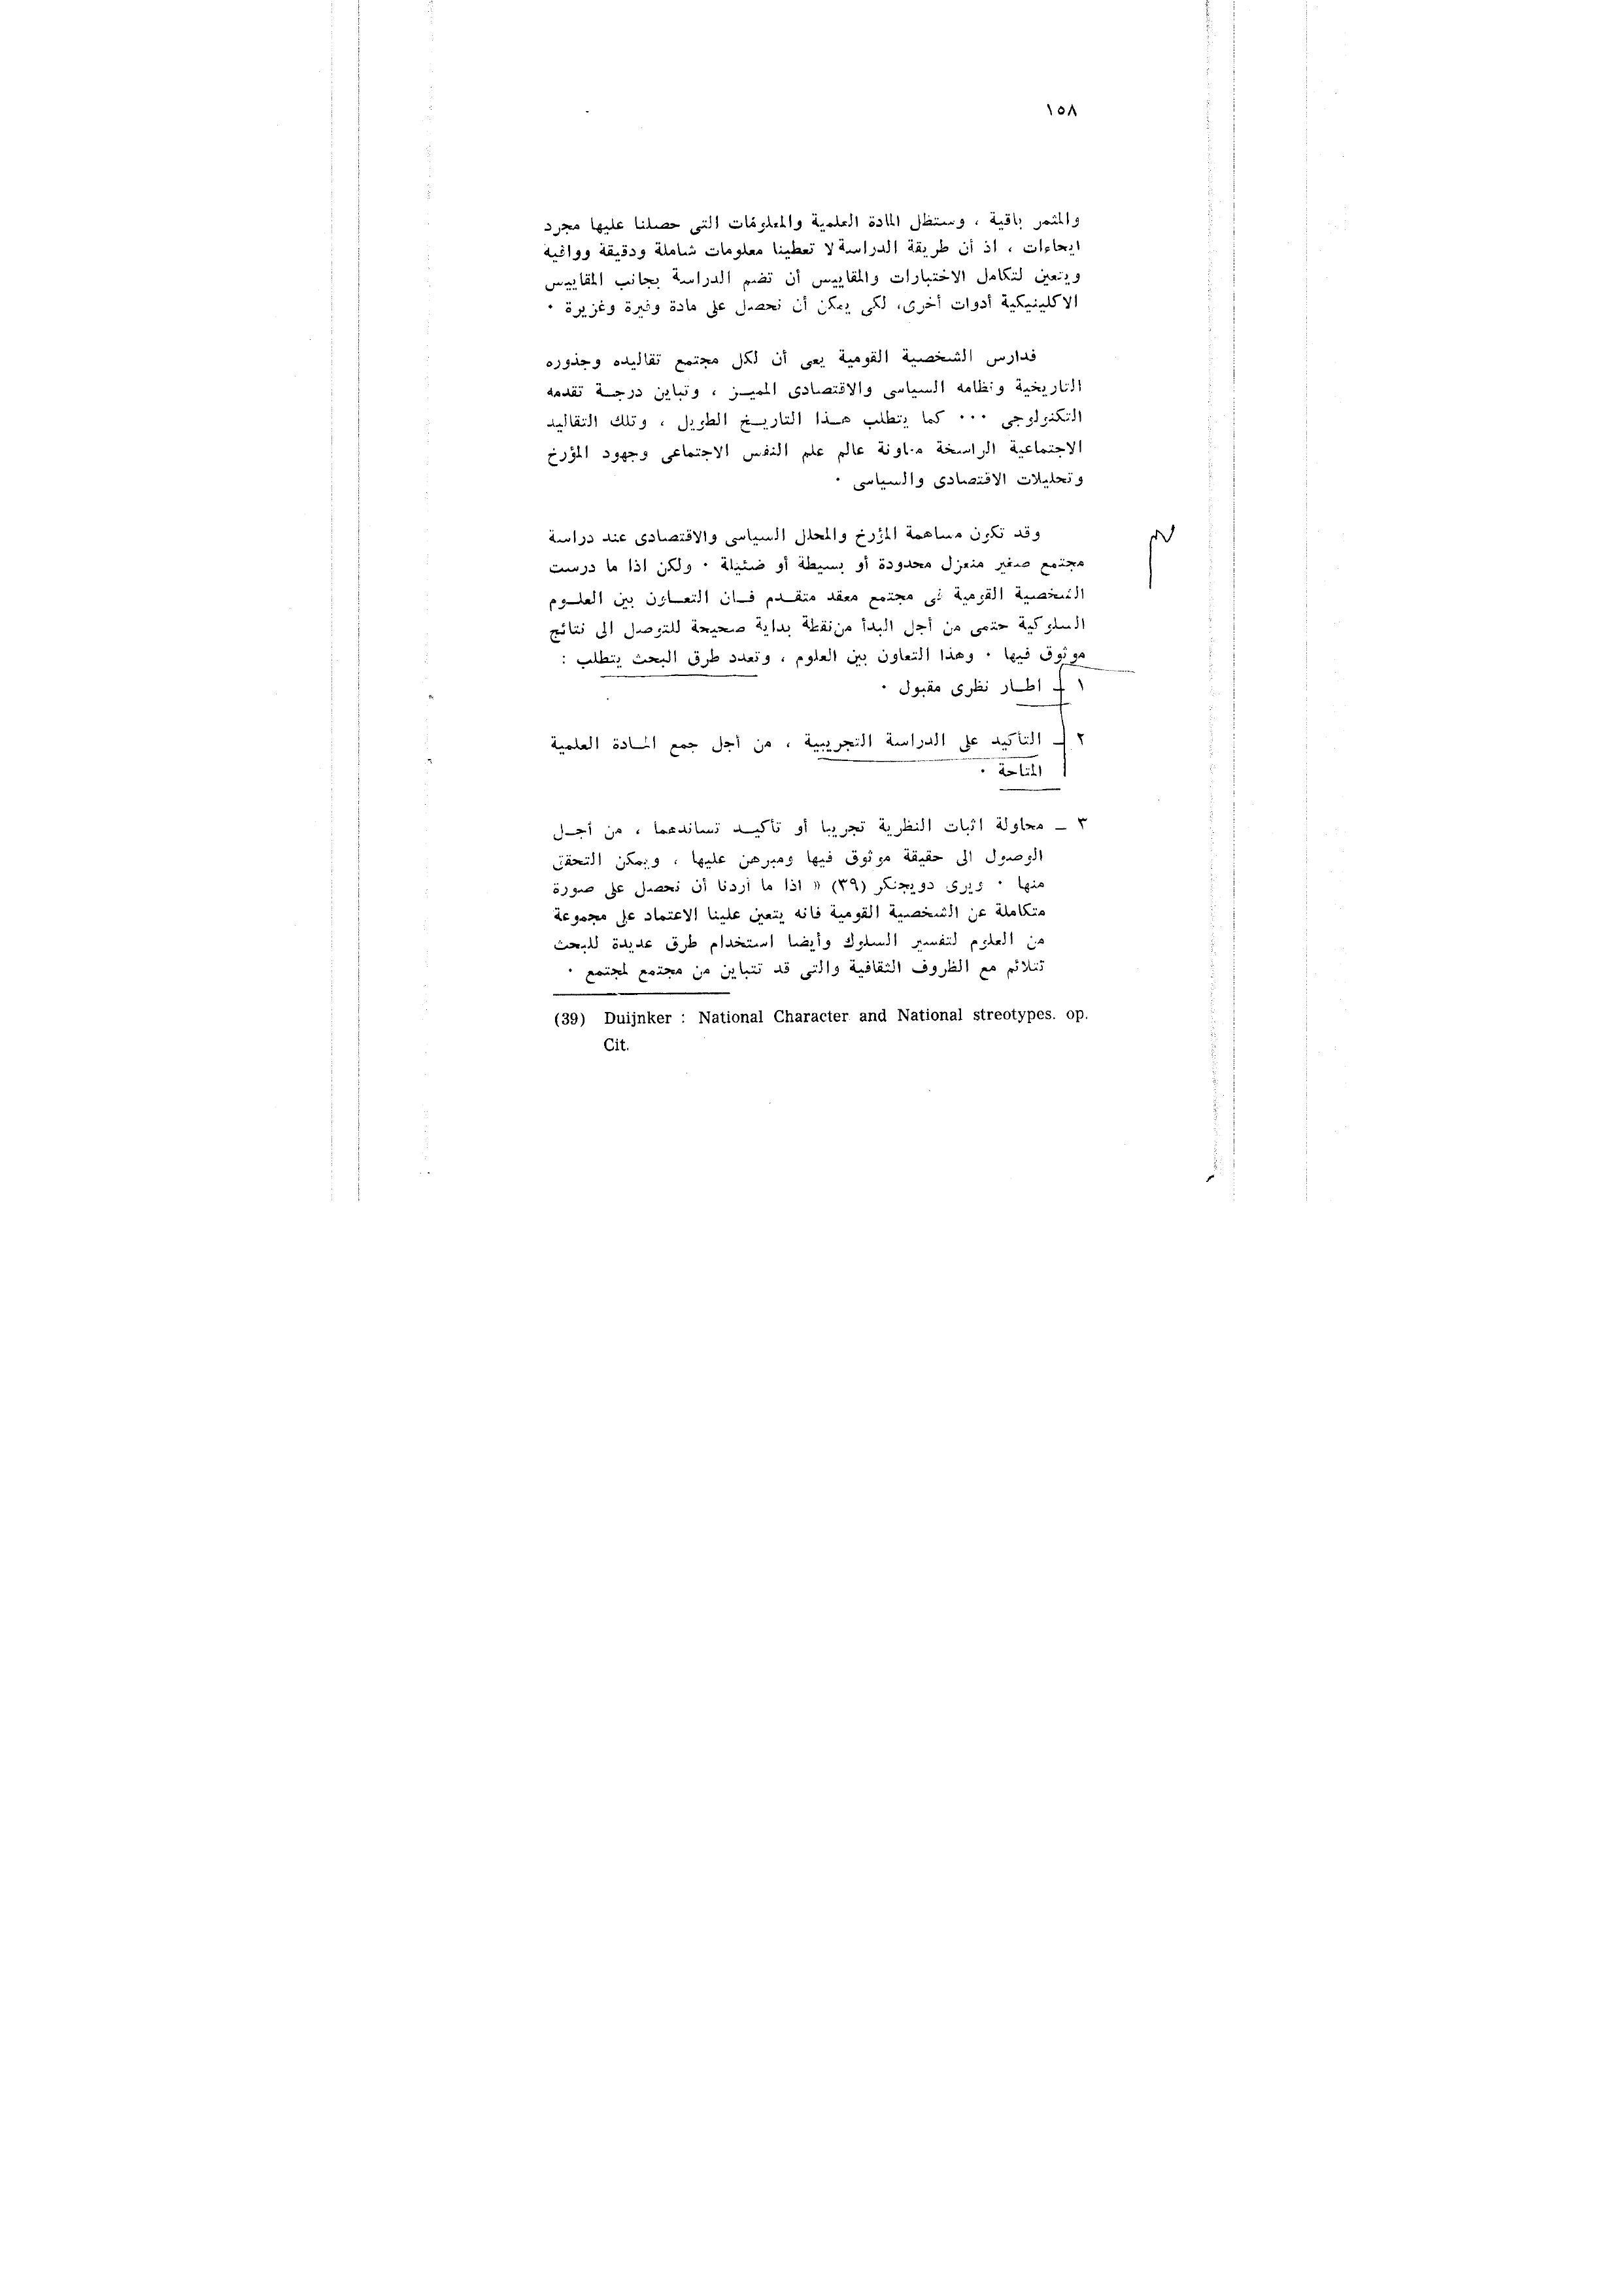 ١٥٨
والمثمر باقية ، وستظل المادة العلمية والمعلومات التى حصلنا عليها مجرد
ايحاءات ، اذ أن طريقة الدراسة لا تعطينا معلومات شاملة ودقيقة ووافية
ويتعين لتكامل الاختبارات والمقاييس أن تضم الدراسة بجانب المقاييس
الاكلينيكية أدوات أخرى، لكى يمكن أن نحصل على مادة وفيرة وغزيرة ٠
فدارس الشخصية القومية يعى أن لكل مجتمع تقاليده وجذوره
التاريخية ونظامه السياسى والاقتصادى المميـز ، وتباين درجـة تقدمه
التكنولوجى ٠٠٠ كما يتطلب هـذا التاريـخ الطويل ، وتلك التقاليد
الاجتماعية الراسخة معاونة عالم علم النفس الاجتماعى وجهود المؤرخ
وتحليلات الاقتصادى والسياسى ٠
وقد تكون مساهمة المؤرخ والمحلل السياسى والاقتصادى عند دراسة
مجتمع صغير منعزل محدودة أو بسيطة أو ضئيلة ٠ ولكن اذا ما درست
الشخصية القومية فى مجتمع معقد متقـدم فـان التعـاون بين العلـوم
السلوكية حتمى من أجل البدأ من نقطة بداية صحيحة للتوصل الى نتائج
موثوق فيها ٠ وهذا التعاون بين العلوم ، وتعدد طرق البحث يتطلب :
١ ـ اطـار نظرى مقبول ٠
٢ ـ التأكيد على الدراسة التجريبية ، من أجل جمع المـادة العلمية
المتاحة ٠
٣ ـ محاولة اثبات النظرية تجريبا أو تأكيـد تساندهما ، من أجـل
الوصول الى حقيقة موثوق فيها ومبرهن عليها ، ويمكن التحقق
منها ٠ ويرى دويجنكر (٣٩) « اذا ما أردنا أن نحصل على صورة
متكاملة عن الشخصية القومية فانه يتعين علينا الاعتماد على مجموعة
من العلوم لتفسير السلوك وأيضا استخدام طرق عديدة للبحث
تتلائم مع الظروف الثقافية والتى قد تتباين من مجتمع لمجتمع ٠
(39) Duijnker : National Character and National streotypes. op.
Cit.